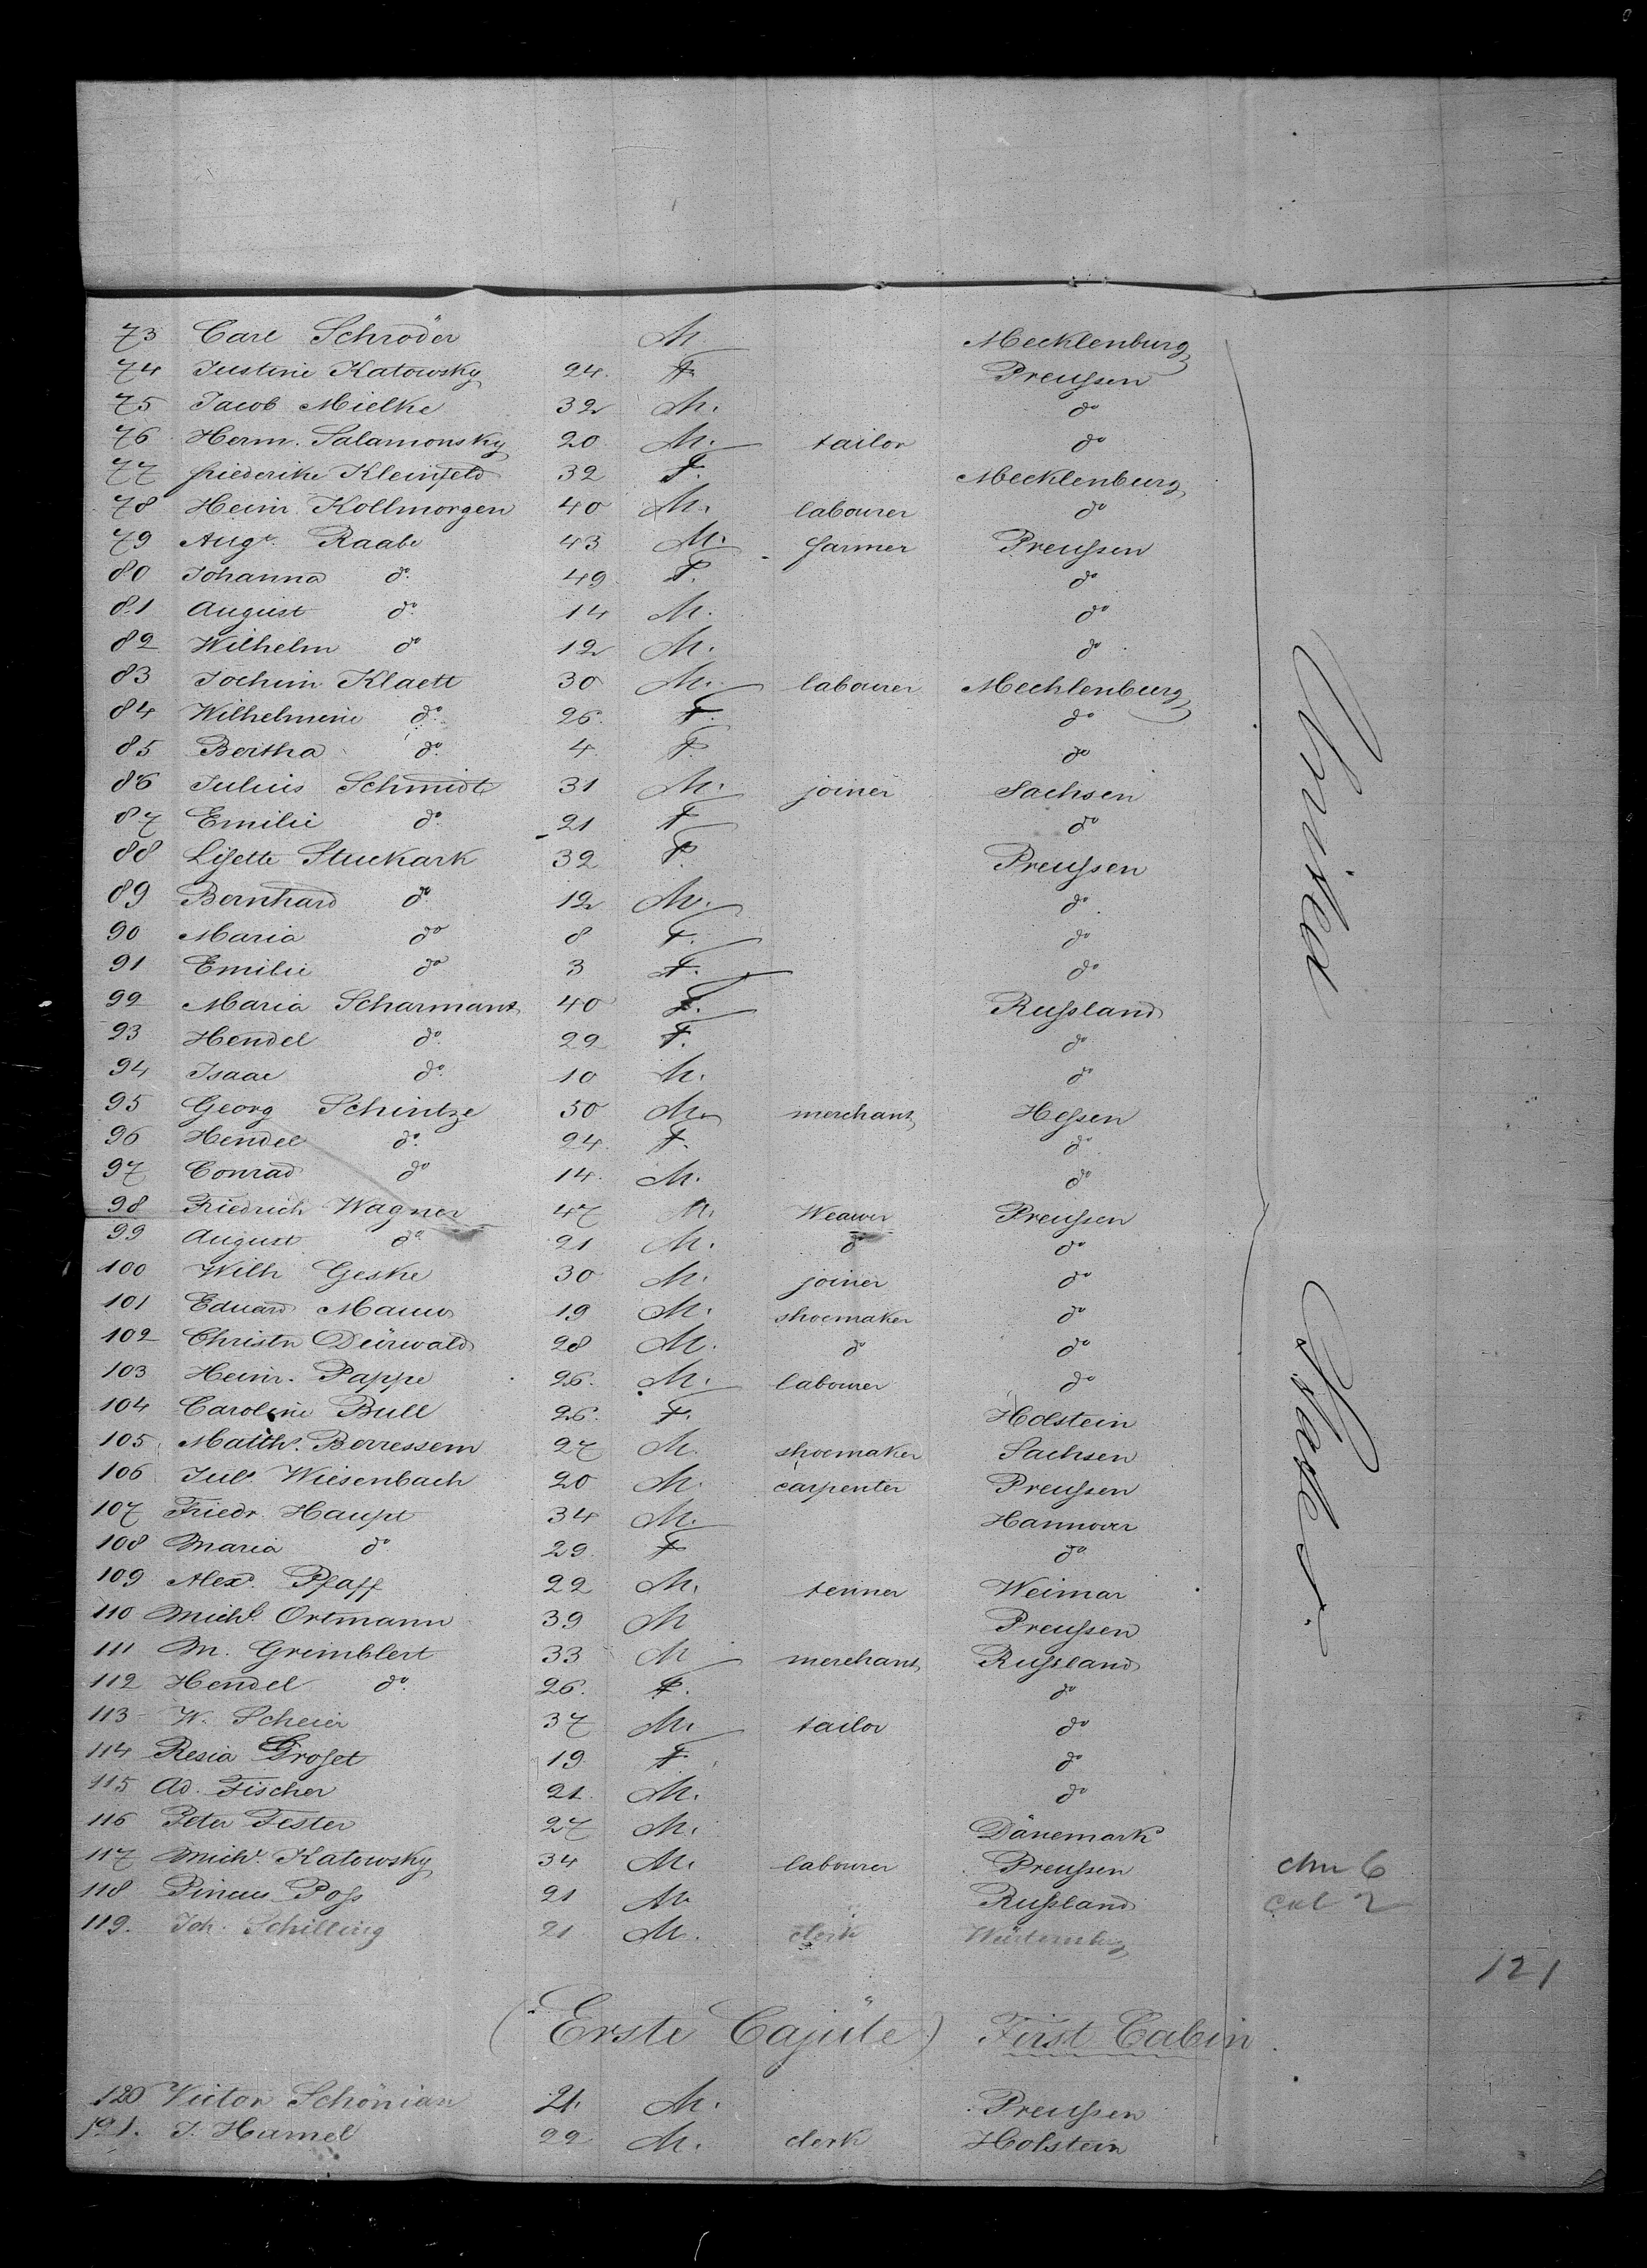 73 Carl Schröder M. Mecklenburg
74 Justine Katowsky 24. F. Preussen
75 Jacob Mielke 32 M. do
76 Herm. Salamonsky 20 M. tailor do
77 friederike Kleinfeld 32 F. Mecklenburg
78 Heinr. Kollmorgen 40 M. labourer do
79 Augt. Raabe 43 M. farmer Preussen
80 Johanna do. 49. F. do
81 August do. 14 M. do
82 Wilhelm do 12 M. do
83 Jochim Klaett 30 M. labourer Mecklenburg
84 Wilhelmine do. 26. F. do
85 Bertha do. 4 F. do
86 Julius Schmidt 31 M. joiner Sachsen
87 Emilie do. 21 F do
88 Lisette Stuckark 32 F. Preussen
89 Bernhard do 12 M. do.
90 Maria do 8 F. do
91 Emilie do 3 F. do
92 Maria Scharmant 40 F. Russland
93 Hendel do. 22 F. do
94 Isaac do. 10 M. do
95 Georg Schintze 50 M. merchant Hessen
96 Hendel do. 24. F. do
97 Conrad do 14. M. do
98 Friedrich Wagner 47 M. Weawer Preussen
99 August do 21 M. do do
100 Wilh Geske 30 M. joiner do
101 Eduard 19 M. shoemaker do
102 Christn Dürwald 28 M. do do
103 Heinr. Pappe 26. M. labourer do
104 Caroline Bull 26. F. Holstein
105 Matths. Berressem 27 M. shoemaker Sachsen
106 Juls. Wiesenbach 20 M. carpenter Preussen
107 Friedr. Haupt 34 M. Hannover
108 Maria do 29. F do
109 Alexd. Pfaff 22 M. tenner Weimar
110 Michl. Ortmann 39 M Preussen
111 M. Grimblert 33 M merchant Russland
112 Hendel do. 26. F. do
113 W. Scheier 37 M. tailor do
114 Resia Grosset 19 F. do
115 Ad. Fischer 21. M. do
116 Peter Fester 27 M. Dänemark
117 Michl. Katowsky 34 M. labourer Preussen
118 Pincus Poss 21 M. Russland
119. Joh. Schilling 21 M. clerk Würtemberg
United States.
6
2
121
(Erste Cajüte) First Cabin
120 Victor Schönian 21. M. Preussen
121. J. Hamel 22 M. clerk Holstein